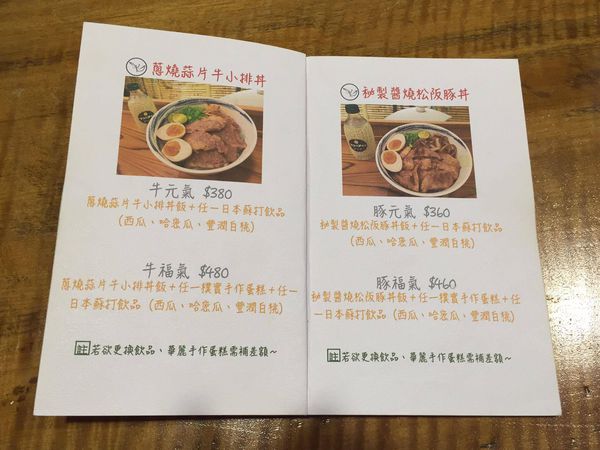 蔥燒蒜片牛小排丼
牛元氣 $380
蔥燒蒜片牛小排丼飯+任一日本蘇打飲品
(西瓜、哈密瓜、豐潤白桃)
牛福氣 $480
蔥燒蒜片牛小排丼飯+任一樸實手作蛋糕+任一
日本蘇打飲品 (西瓜、哈密瓜、豐潤白桃)
註若欲更換飲品、華麗手作蛋糕需補差額~
秘製醬燒松阪豚丼
豚元氣 $360
秘製醬燒松阪豚丼飯+任一日本蘇打飲品
(西瓜、哈密瓜、豐潤白桃)
豚福氣 $460
秘製醬燒松阪豚丼飯+任一樸實手作蛋糕+任
一日本蘇打飲品 (西瓜、哈密瓜、豐潤白桃)
註若欲更換飲品、華麗手作蛋糕需補差額~